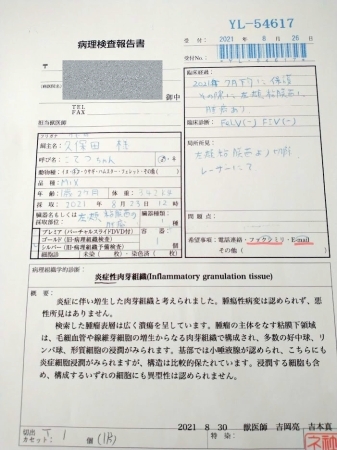 YL-54617
病理検査報告書
受 付: 2021 年 8 月 26 日
〒
御中
TEL
FAX
担当獣医師
臨床経過:
臨床診断: FeLV(-) FIV(-)
局所所見:
レーザーにて
飼主名:
呼び名: こてつちゃん
動物種(イヌ・ネコ・ウサギ・ハムスター・フェレット・その他)
品種: MIX
採 取: 2021 年 8 月 23 日
臓器名もしくは
採取部位:
臓器種
プレミア(バーチャルスライドDVD付)
ゴールド(旧・病理組織検査)
シルバー(旧・病理組織予備検査)
問題点
希望事項: 電話連絡・ファクシミリ・E-mail
その他 ( )
病理組織学的診断: 炎症性肉芽組織(Inflammatory granulation tissue)
概 要:
炎症に伴い増生した肉芽組織と考えられました。腫瘍性病変は認められず、悪
性所見はありません。
検索した腫瘤表層は広く潰瘍を呈しています。腫瘤の主体をなす粘膜下領域
は、毛細血管や線維芽細胞の増生からなる肉芽組織で構成され、多数の好中球、リ
ンパ球、形質細胞の浸潤がみられます。基部では小唾液腺が認められ、こちらにも
炎症細胞浸潤がみられますが、構造は比較的保たれています。浸潤する細胞も含
め、構成するいずれの細胞にも異型性は認められません。
2021 8 30 獣医師 吉岡亮 吉本真
切出 T 1
カセット: 個
特 染: